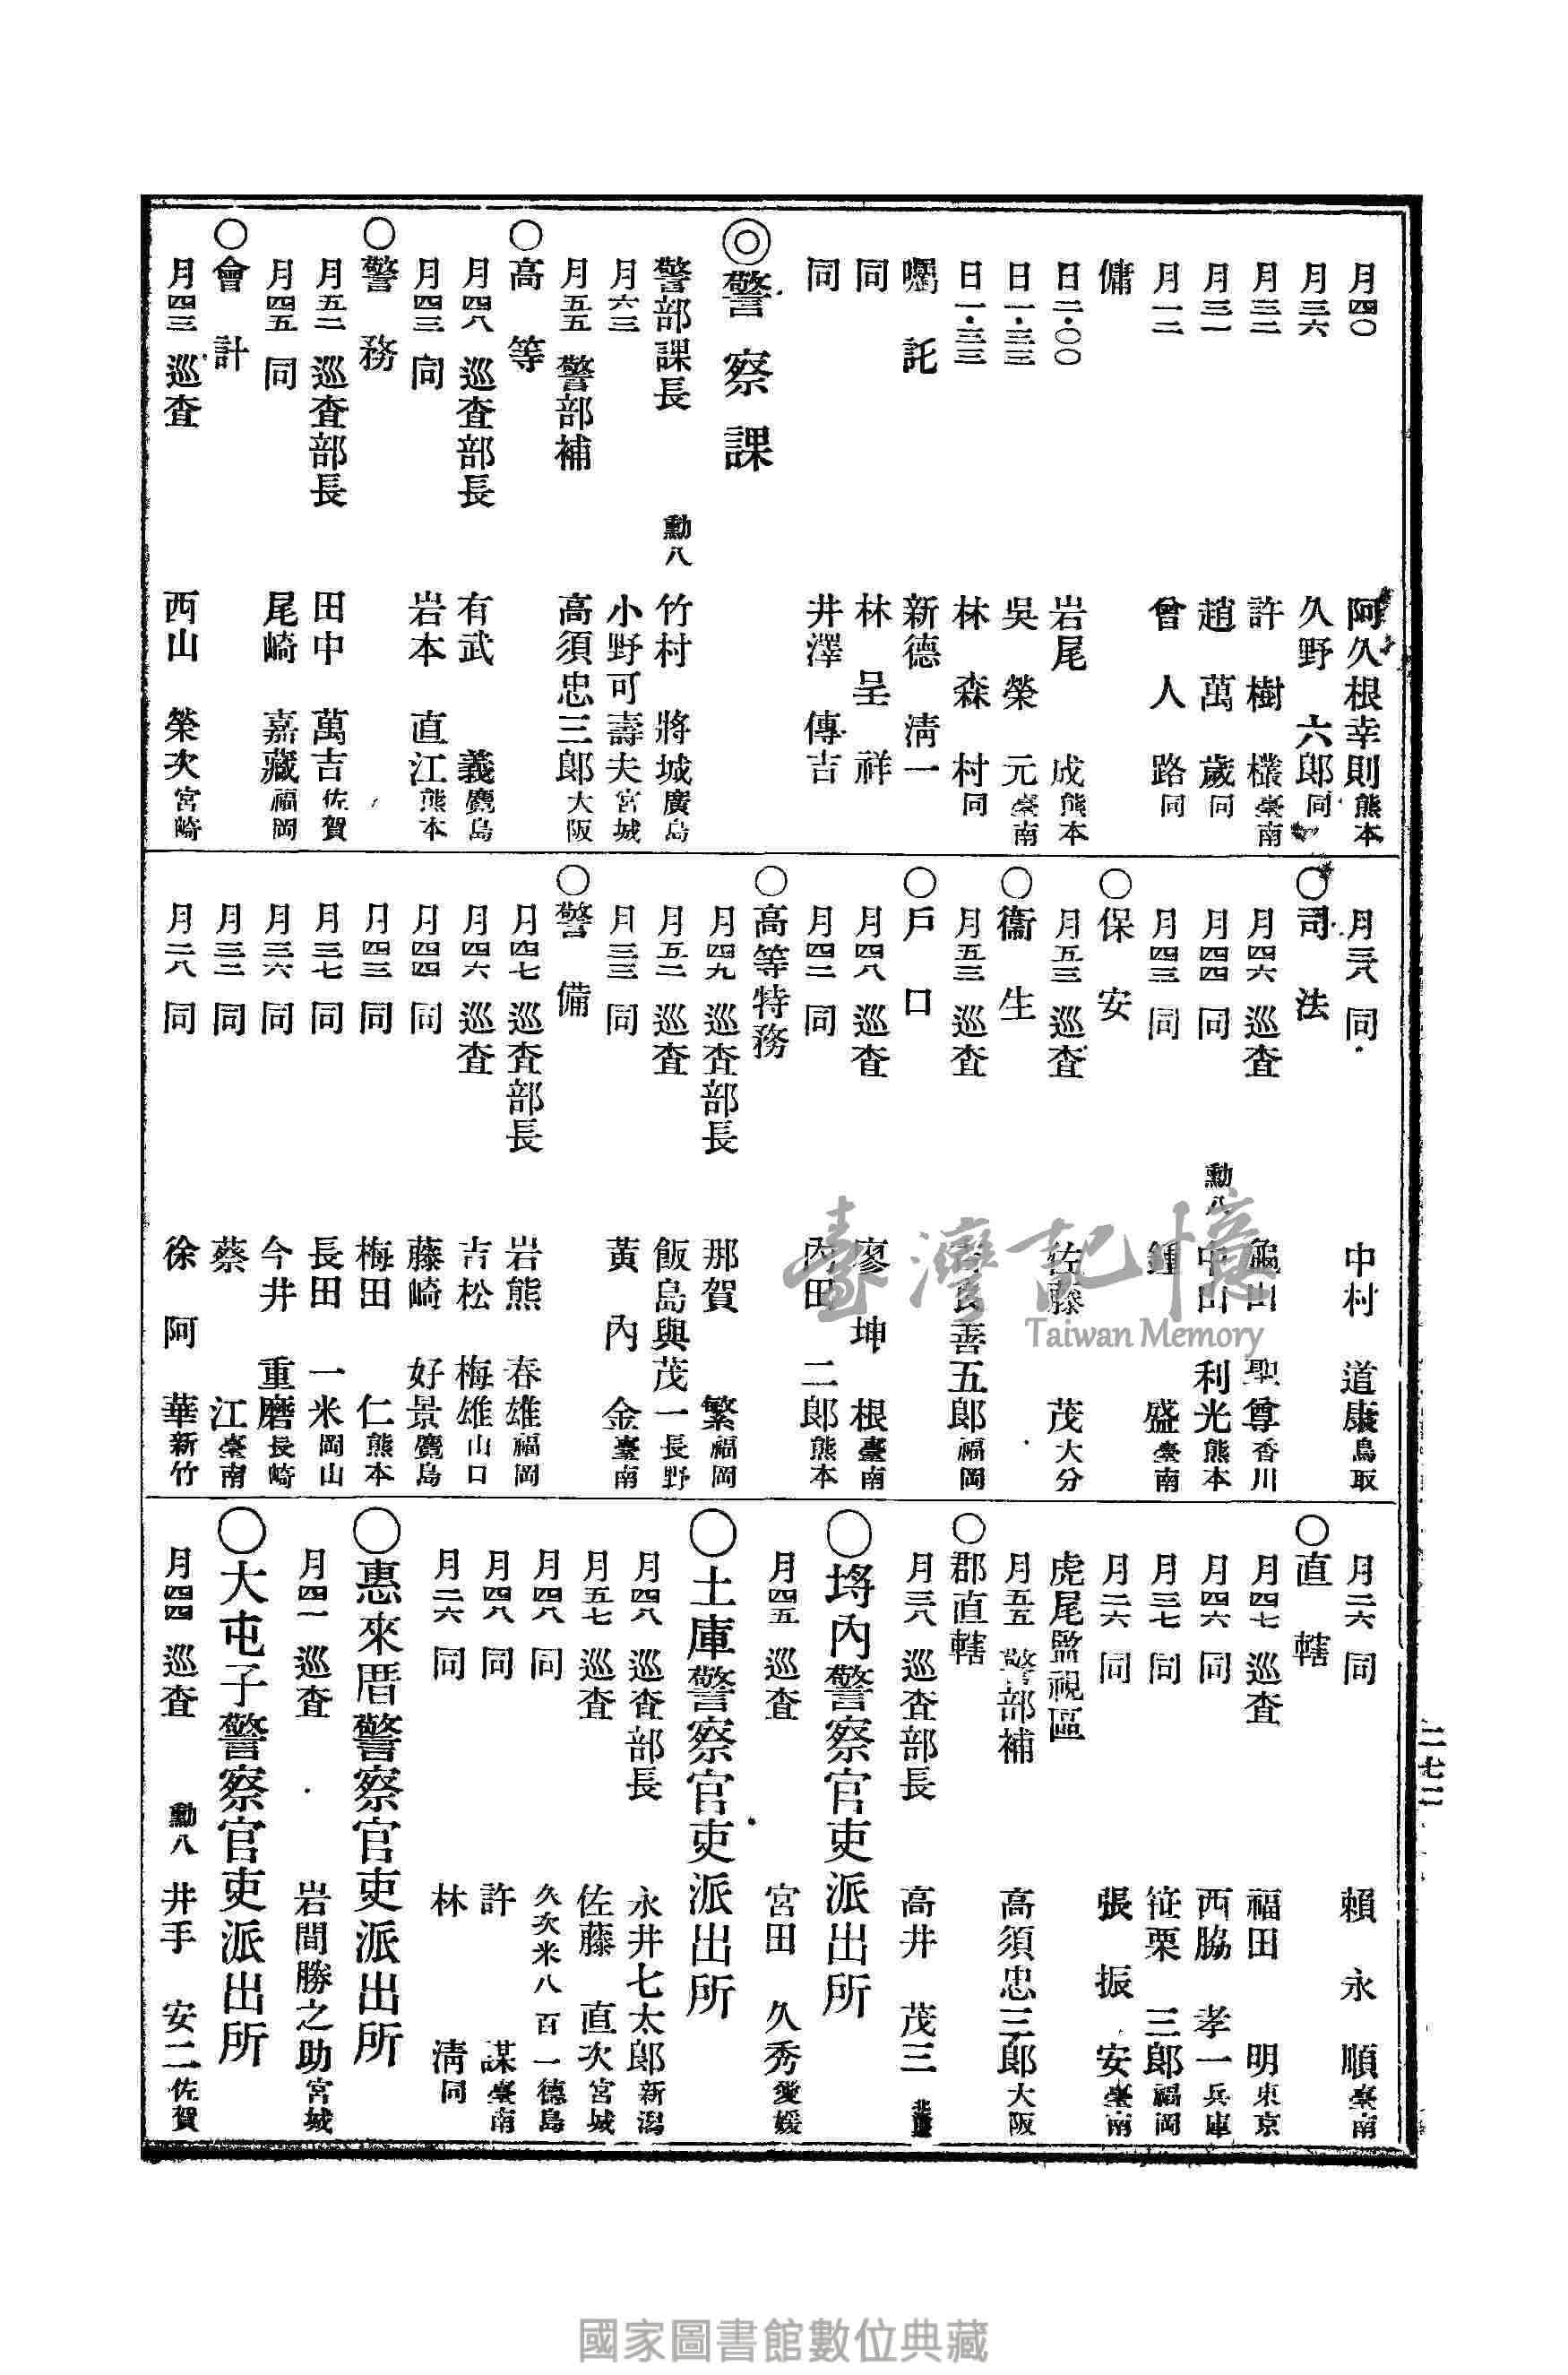 月四〇 阿久根幸則 熊本
月三六 久野 六郎 同
月三二 許 樹 欉 臺南
月三一 趙 萬 歲 同
月一二 曾 人 路 同
傭
日二・〇〇 岩尾 成 熊本
日一・三三 吳 榮 元 臺南
日一・三三 林 森 村 同
囑 託 新德 淸一
同 林 呈 祥
同 井澤 傳吉
◎警 察 課
警部課長 勳八 竹村 將城 廣島
月六三 小野可壽夫 宮城
月五五 警部補 高須忠三郎 大阪
○高 等
月四八 巡查部長 有武 義 鹿島
月四三 同 岩本 直江 熊本
○警 務
月五二 巡查部長 田中 萬吉 佐賀
月四五 同 尾崎 嘉藏 福岡
○會 計
月四三 巡查 西山 榮次 宮崎
月三八 同 中村 道康 鳥取
○司 法
月四六 巡查 龜山 聖尊 香川
月四四 同 勳八 中山 利光 熊本
月四三 同 鍾 盛 臺南
○保 安
月五三 巡查 佐藤 茂 大分
○衞 生
月五三 巡查 善五郎 福岡
○戶 口
月四八 巡查 廖 坤 根 臺南
月四二 同 內田 二郎 熊本
○高等特務
月四九 巡查部長 那賀 繁 福岡
月五二 巡查 飯島與茂一 長野
月三三 同 黃 內 金 臺南
○警 備
月四七 巡查部長 岩熊 春雄 福岡
月四六 巡查 吉松 梅雄 山口
月四四 同 藤崎 好景 鹿島
月四三 同 梅田 仁 熊本
月三七 同 長田 一米 岡山
月三六 同 今井 重磨 長崎
月三二 同 蔡 江 臺南
月二八 同 徐 阿 華 新竹
月二六 同 賴 永 順 臺南
○直 轄
月四七 巡查 福田 明 東京
月四六 同 西脇 孝一 兵庫
月三七 同 笹栗 三郎 福岡
月二六 同 張 振 安 臺南
虎尾監視區
月五五 警部補 高須忠三郎 大阪
○郡直轄
月三八 巡查部長 高井 茂三 北海道
○埓內警察官吏派出所
月四五 巡查 宮田 久秀 愛媛
○土庫警察官吏派出所
月四八 巡查部長 永井七太郎 新潟
月五七 巡查 佐藤 直次 宮城
月四八 同 久次米八百一 德島
月四八 同 許 謀 臺南
月二六 同 林 淸 同
○惠來厝警察官吏派出所
月四一 巡查 岩間勝之助 宮城
○大屯子警察官吏派出所
月四四 巡查 勳八 井手 安二 佐賀
二七二
臺灣記憶
Taiwan Memory
國家圖書館數位典藏